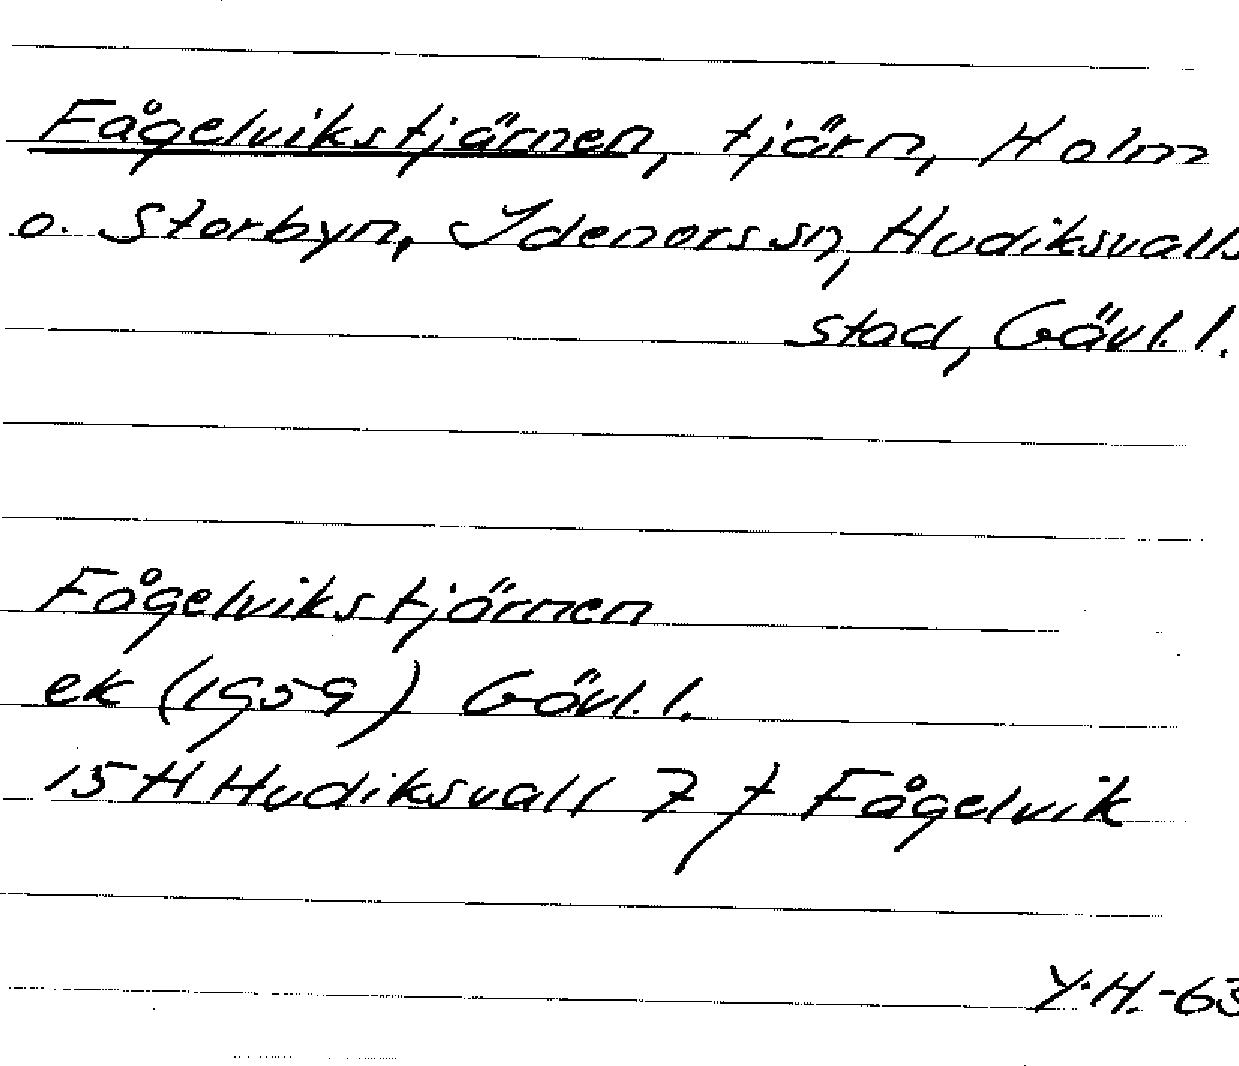 Fågelvikstjärnen, tjärn, Holm
o. Storbyn, Idenors sn, Hudiksvalls
stad, Gävl. l.
Fågelvikstjärnen
ek (1959) Gävl. l.
15 H Hudiksvall 7 f Fågelvik
Y.H.-63